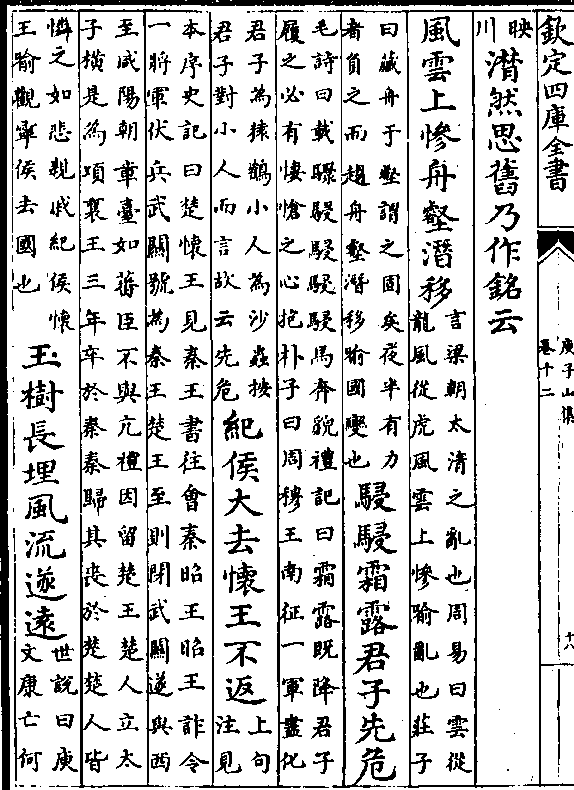 欽定四庫全書
庾子山集
卷十二
十八
映
川
潸然思舊乃作銘云
風雲上慘舟壑潛移
言梁朝太清之亂也周易曰雲從
龍風從虎風雲上慘喻亂也莊子
曰藏舟于壑謂之固矣夜半有力
者負之而趨舟壑潛移喻國變也
駸駸霜露君子先危
毛詩曰載驟駸駸駸駸馬奔貌禮記曰霜露既降君子
履之必有悽愴之心抱朴子曰周穆王南征一軍盡化
君子為猿鶴小人為沙蟲按
君子對小人而言故云先危
紀侯大去懷王不返
上句
注見
本序史記曰楚懷王見秦王書往會秦昭王昭王詐令
一將軍伏兵武關號為秦王楚王至則閉武關遂與西
至咸陽朝章臺如蕃臣不與亢禮因留楚王楚人立太
子橫是為項襄王三年卒於秦秦歸其喪於楚楚人皆
憐之如悲親戚紀侯懷
王喻觀寧侯去國也
玉樹長埋風流遂遠
世說曰庾
文康亡何